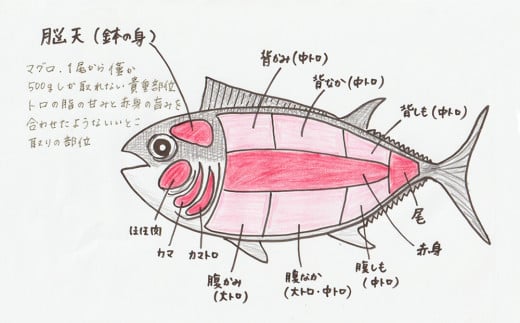 脳天(鉢の身)
マグロ、1尾から僅か
500gしか取れない貴重部位
トロの脂の甘みと赤身の旨みを
合わせたようないいとこ
取りの部位
背かみ(中トロ)
背なか(中トロ)
背しも(中トロ)
ほほ肉
カマ
カマトロ
腹かみ
(大トロ)
腹なか
(大トロ・中トロ)
腹しも
(中トロ)
赤身
尾